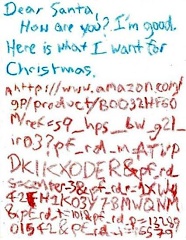 Dear Santa,
How are you? I'm good.
Here is what I want for
Christmas.
http://www.amazon.com/
gp/product/B0032HF60
M/ref=s9_hps_bw_g21_
ir03?pf_rd_m=ATVP
DKIKX0DER&pf_rd_
s=center-3&pf_rd_r=
&pf_rd_t=101&pf_rd_p=